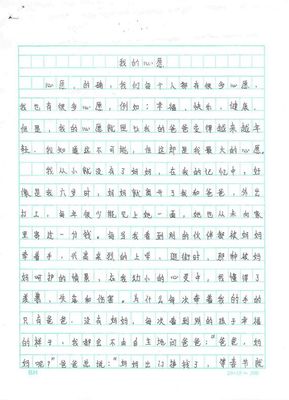 我的心愿
心愿，的确，我们每个人都有很多心愿，
我也有很多心愿，例如：幸福、快乐、健康，
但是，我的心愿就是让我的爸爸变得越来越年
轻。我知道这不可能，但这却是我最大的心愿。
我从小就没有了妈妈，在我的记忆中，好
像是我六岁时，妈妈就离开了我和爸爸，外出
打工，每年很少能见上她一面，她也从未向家
里寄过一分钱。每当我看到别的伙伴都被妈妈
牵着手，欢高采烈的上学、逛街时，那种被妈
妈呵护的情景，在我幼小的心灵中，我懂得了
羡慕、失落和伤害。为什么每次牵着我的手的
只有爸爸，没有妈妈，每次看到别的孩子幸福
的样子，我都自不由自主地问爸爸：“爸爸，妈
妈呢？”爸爸总说：“妈妈出门挣钱了，等春节就